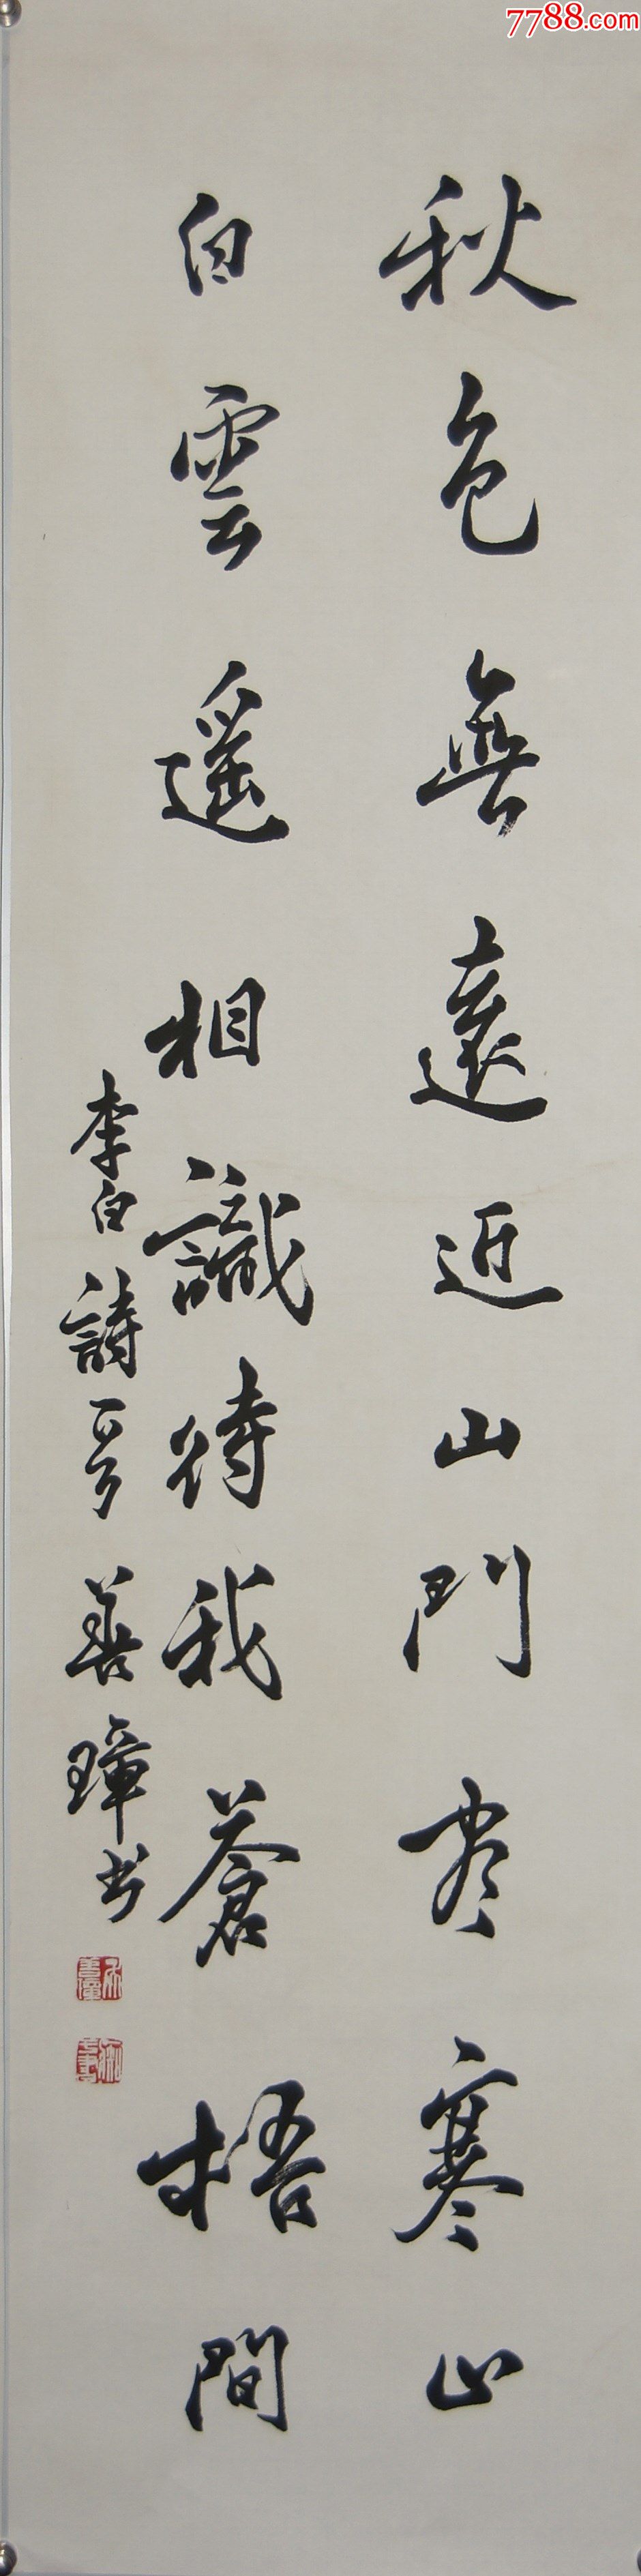 7788.com
秋色無遠近山門尽寒山
白雲遥相識待我蒼梧間
李白詩一首善璋书